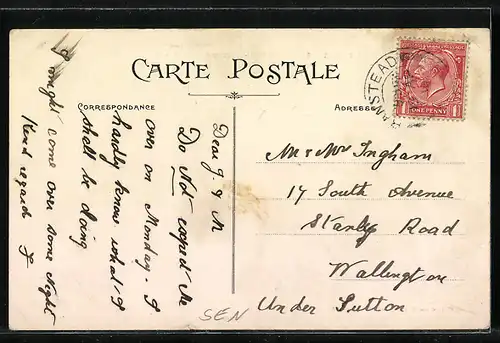 CARTE POSTALE
CORRESPONDANCE
ADRESSE
BANSTEAD
ONE PENNY
Dear J. & M
Do Not expect Me
over on Monday. I
hardly know what I
shall be doing
I might come over some Night
Kind regards F
Mr & Mrs Ingham
17 South Avenue
Stanley Road
Wallington
Under Sutton
SEN